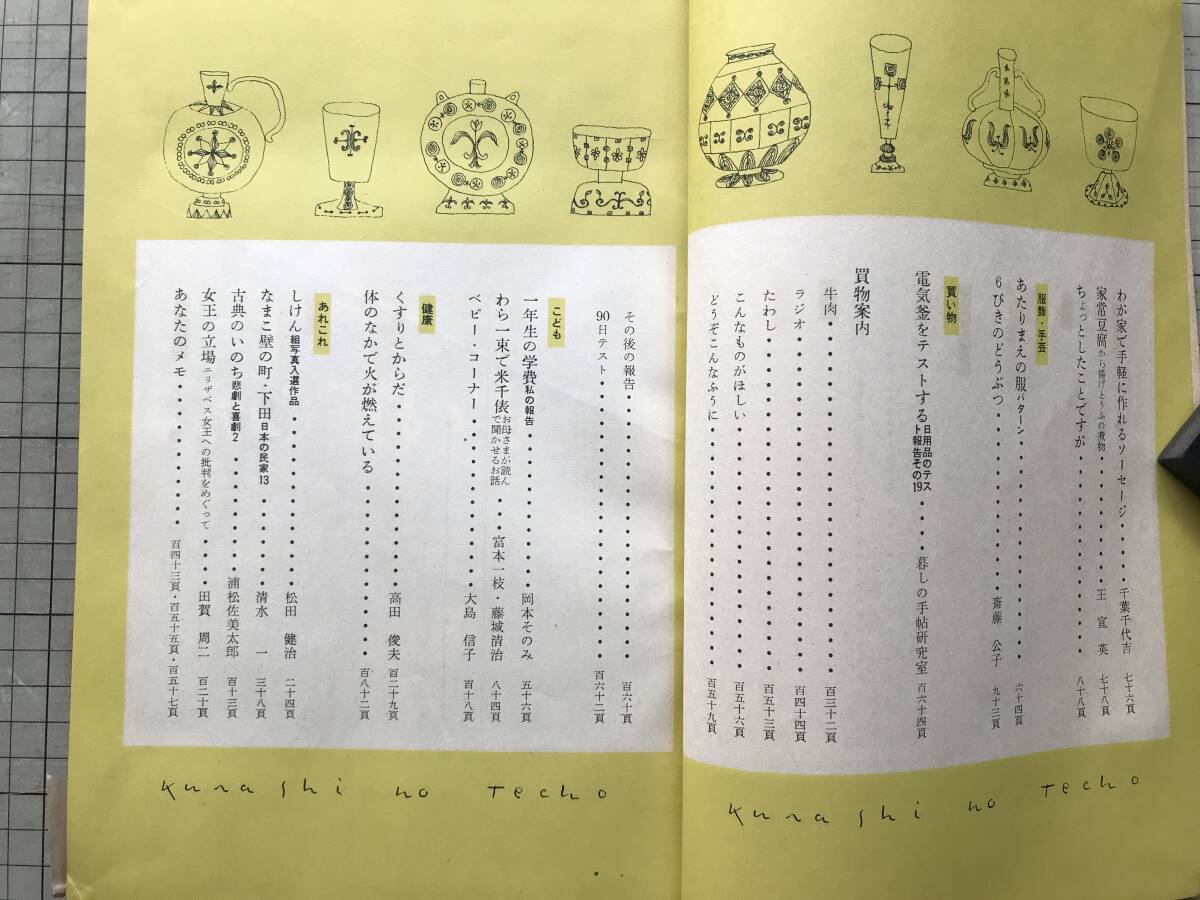 わが家で手軽に作れるソーセージ・・・・千葉千代吉 七十六頁
家常豆腐から揚げどうふの煮物・・・・・・・王 宜英 七十八頁
ちょっとしたことですが・・・・・・・・・・・・・・・八十八頁
服飾・手芸
あたりまえの服パターン・・・・・・・・・・・・・・六十四頁
6ぴきのどうぶつ・・・・・・・・・・斎藤 公子 九十三頁
買い物
電気釜をテストする日用品のテスト報告その19・・・・暮しの手帖研究室 百六十四頁
買物案内
牛肉・・・・・・・・・・・・・・・・・・百三十二頁
ラジオ・・・・・・・・・・・・・・・・・百四十四頁
たわし・・・・・・・・・・・・・・・・・百五十三頁
こんなものがほしい・・・・・・・・・・・・百五十六頁
どうぞこんなふうに・・・・・・・・・・・・百五十九頁
その後の報告・・・・・・・・・・・・・・・百六十頁
90日テスト・・・・・・・・・・・・・・・・百六十二頁
こども
一年生の学費私の報告・・・・・・・・・岡本そのみ 五十六頁
わら一束で米千俵お母さまが読んで聞かせるお話・・・富本一枝・藤城清治 八十四頁
ベビー・コーナー・・・・・・・・・・大島 信子 百十八頁
健康
くすりとからだ・・・・・・・・・・・高田 俊夫 百二十九頁
体のなかで火が燃えている・・・・・・・・・・・百八十二頁
あれこれ
しけん組写真入選作品・・・・・・・・・松田 健治 二十四頁
なまこ壁の町・下田日本の民家13・・・・・清水 一 三十八頁
古典のいのち悲劇と喜劇2・・・・・・・浦松佐美太郎 百十三頁
女王の立場エリザベス女王への批判をめぐって・・・・田賀 周二 百二十頁
あなたのメモ・・・・・・・・・・百四十三頁・百五十五頁・百五十七頁
Kurashi no Techo
Kurashi no Techo